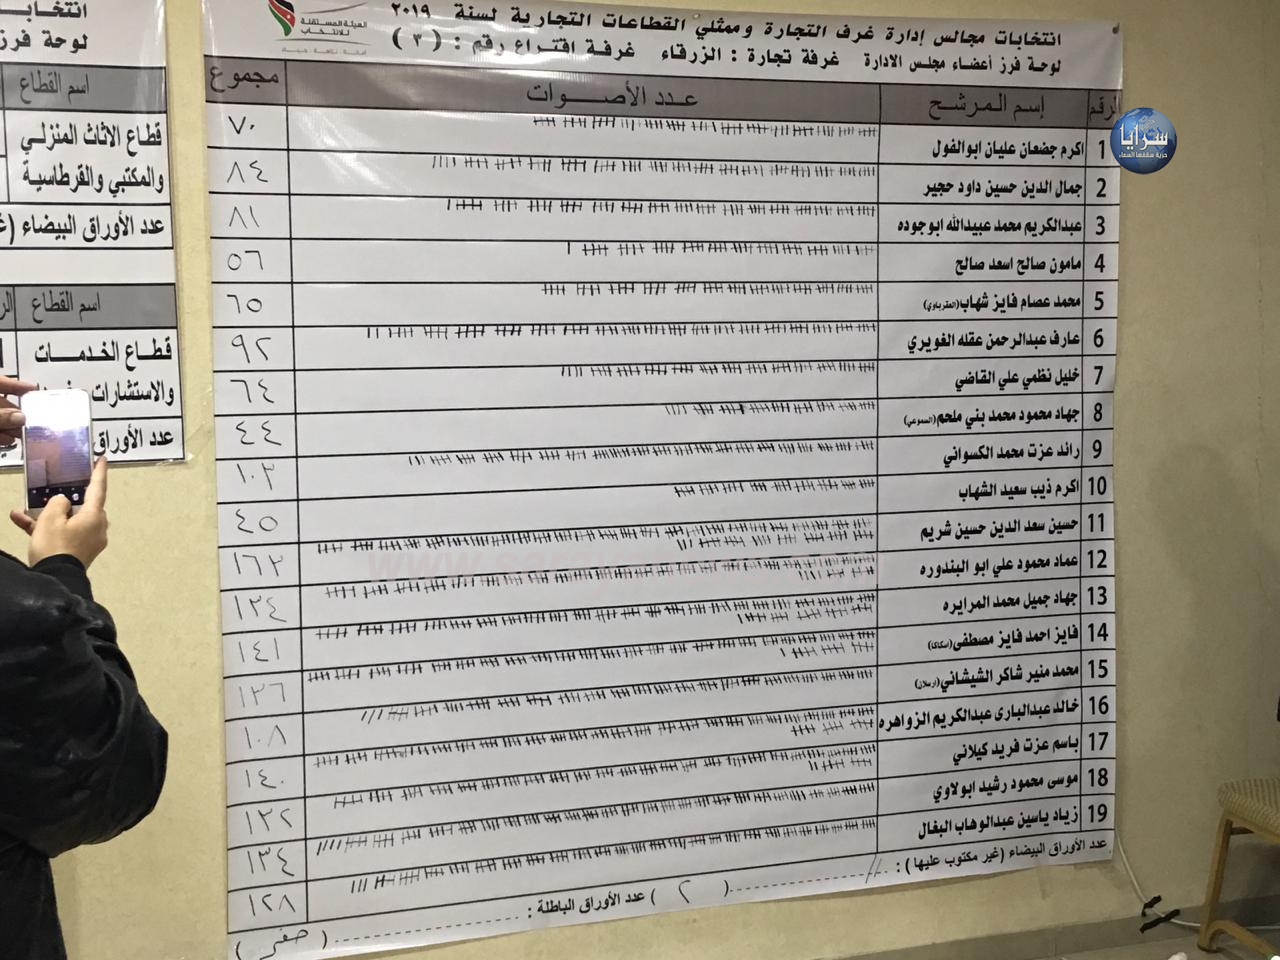 الهيئة المستقلة
للانتخاب
انتخابات مجالس إدارة غرف التجارة وممثلي القطاعات التجارية لسنة ٢٠١٩
لوحة فرز أعضاء مجلس الادارة غرفة تجارة : الزرقاء غرفة اقتراع رقم : ( ٣ )
الرقم إسم المرشح عدد الأصوات مجموع
1 اكرم جضعان عليان ابوالفول ٧٠
2 جمال الدين حسين داود حجير ٨٤
3 عبدالكريم محمد عبيدالله ابوجوده ٨١
4 مامون صالح اسعد صالح ٥٦
5 محمد عصام فايز شهاب (العقرباوي) ٦٥
6 عارف عبدالرحمن عقله الغويري ٩٢
7 خليل نظمي علي القاضي ٦٤
8 جهاد محمود محمد بني ملحم (السموعي) ٤٤
9 رائد عزت محمد الكسواني ١٠٣
10 اكرم ذيب سعيد الشهاب ٤٥
11 حسين سعد الدين حسين شريم ١٦٣
12 عماد محمود علي ابو البندوره ١٣٤
13 جهاد جميل محمد المرايره ١٤١
14 فايز احمد فايز مصطفى (سكاكا) ١٣٦
15 محمد منير شاكر الشيشاني (ارسلان) ١٠٨
16 خالد عبدالبارى عبدالكريم الزواهره ١٤٠
17 باسم عزت فريد كيلاني ١٣٢
18 موسى محمود رشيد ابولاوي ١٣٤
19 زياد ياسين عبدالوهاب البغال ١٢٨
عدد الأوراق البيضاء (غير مكتوب عليها) : ( ٢ ) عدد الأوراق الباطلة : ( صفر )
انتخابا
لوحة فرز
اسم القطاع
قطاع الاثاث المنزلي
والمكتبي والقرطاسية
عدد الأوراق البيضاء (غ
اسم القطاع الر
قطاع الخدمات
والاستشارات
عدد الأوراق
سرايا
حرية سقفها السماء